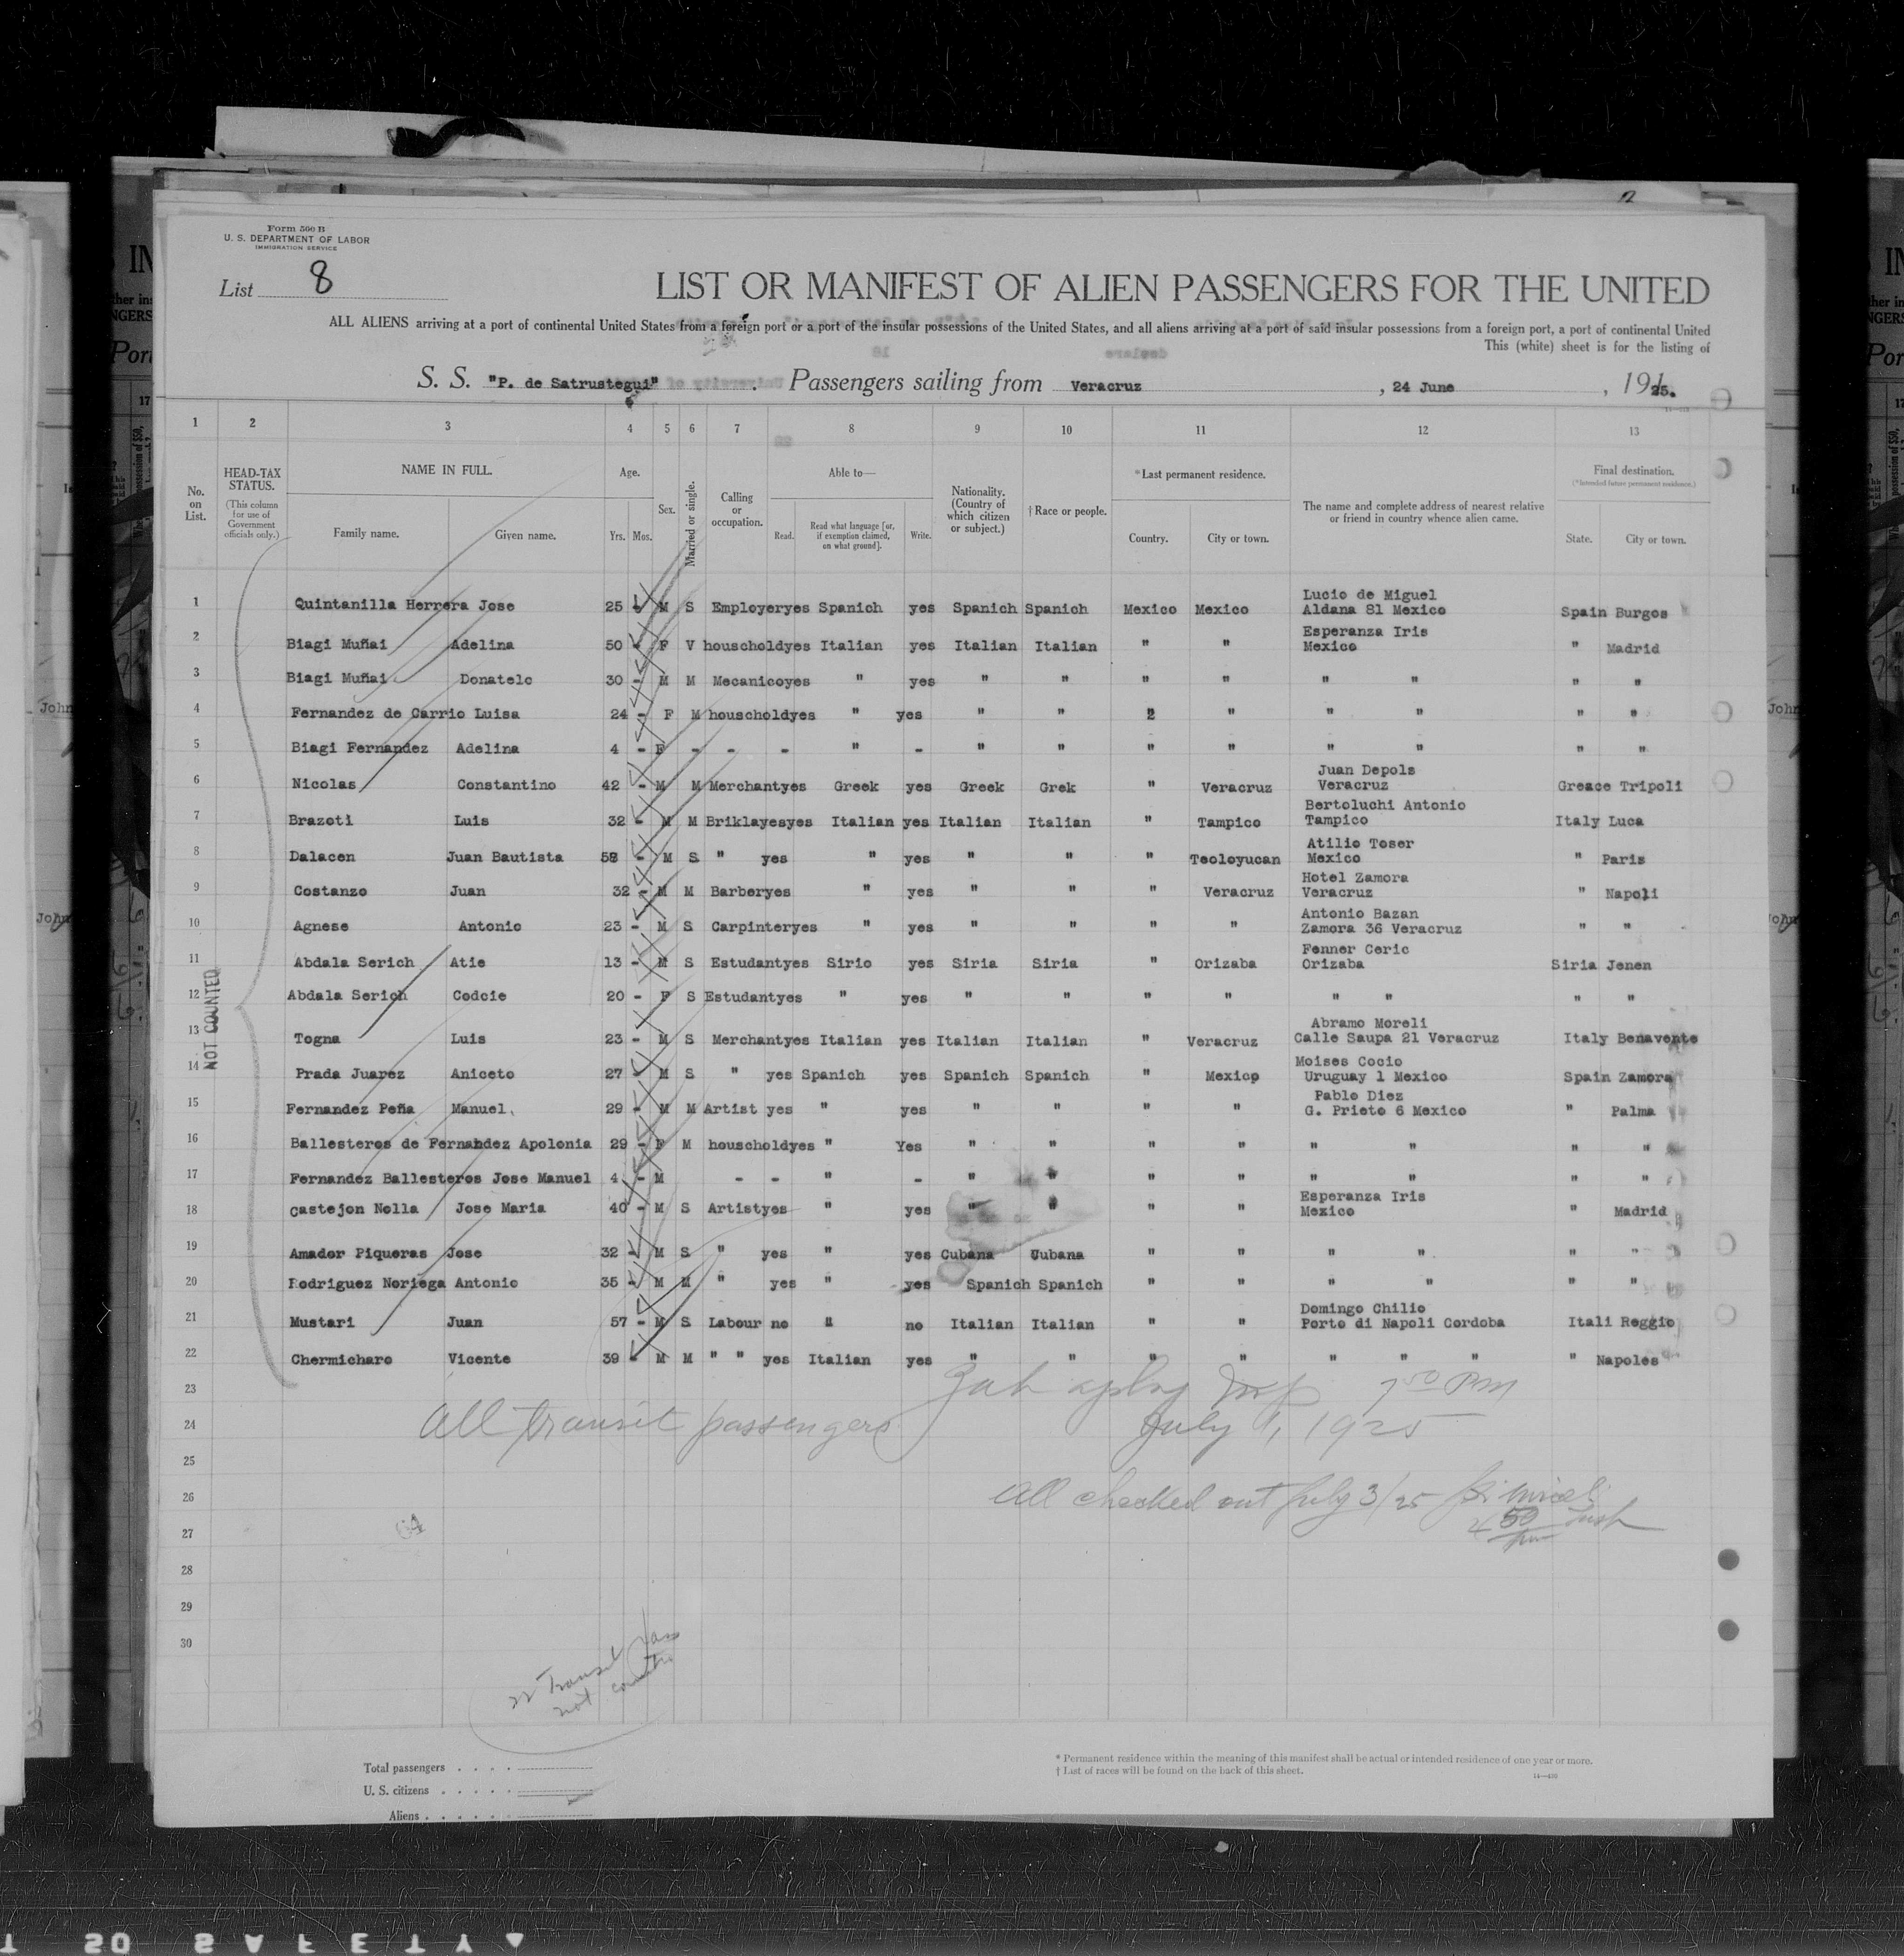 Form 500 B
U. S. DEPARTMENT OF LABOR
IMMIGRATION SERVICE
List 8
LIST OR MANIFEST OF ALIEN PASSENGERS FOR THE UNITED
ALL ALIENS arriving at a port of continental United States from a foreign port or a port of the insular possessions of the United States, and all aliens arriving at a port of said insular possessions from a foreign port, a port of continental United
This (white) sheet is for the listing of
S. S. "P. de Satrustegui" . Passengers sailing from Veracruz , 24 June , 191 25.
1 2 3 4 5 6 7 8 9 10 11 12 13
No. on List.
HEAD-TAX STATUS.
(This column for use of Government officials only.)
NAME IN FULL.
Family name. Given name.
Age.
Yrs. Mos.
Sex.
Married or single.
Calling or occupation.
Able to—
Read. Read what language [or, if exemption claimed, on what ground]. Write.
Nationality. (Country of which citizen or subject.)
† Race or people.
*Last permanent residence.
Country. City or town.
The name and complete address of nearest relative or friend in country whence alien came.
Final destination.
(*Intended future permanent residence.)
State. City or town.
1 Quintanilla Herrera Jose 25 - M S Employeryes Spanich yes Spanich Spanich Mexico Mexico Lucio de Miguel Aldana 81 Mexico Spain Burgos
2 Biagi Muñai Adelina 50 - F V houscholdyes Italian yes Italian Italian " " Esperanza Iris Mexico " Madrid
3 Biagi Muñai Donatelo 30 - M M Mecanicoyes " yes " " " " " " " "
4 Fernandez de Carrio Luisa 24 - F M houscholdyes " yes " " " " " " " "
5 Biagi Fernandez Adelina 4 - F - - - " - " " " " " " " "
6 Nicolas Constantino 42 - M M Merchantyes Greek yes Greek Grek " Veracruz Juan Depols Veracruz Greace Tripoli
7 Brazoti Luis 32 - M M Briklayesyes Italian yes Italian Italian " Tampico Bertoluchi Antonio Tampico Italy Luca
8 Dalacen Juan Bautista 58 - M S " yes " yes " " " Teoloyucan Atilio Toser Mexico " Paris
9 Costanzo Juan 32 - M M Barberyes " yes " " " Veracruz Hotel Zamora Veracruz " Napoli
10 Agnese Antonio 23 - M S Carpinteryes " yes " " " " Antonio Bazan Zamora 36 Veracruz " "
11 Abdala Serich Atie 13 - M S Estudantyes Sirio yes Siria Siria " Orizaba Fenner Ceric Orizaba Siria Jenen
12 Abdala Serich Codcie 20 - F S Estudantyes " yes " " " " " " " "
13 Togna Luis 23 - M S Merchantyes Italian yes Italian Italian " Veracruz Abramo Moreli Calle Saupa 21 Veracruz Italy Benavente
14 Prada Juarez Aniceto 27 - M S " yes Spanich yes Spanich Spanich " Mexico Moises Cocio Uruguay 1 Mexico Spain Zamora
15 Fernandez Peña Manuel 29 - M M Artist yes " yes " " " " Pablo Diez G. Prieto 6 Mexico " Palma
16 Ballesteros de Fernandez Apolonia 29 - F M houscholdyes " Yes " " " " " " " "
17 Fernandez Ballesteros Jose Manuel 4 - M - - " - " " " " " " " "
18 Castejon Nolla Jose Maria 40 - M S Artistyes " yes " " " " Esperanza Iris Mexico " Madrid
19 Amador Piqueras Jose 32 - M S " yes " yes Cubana Cubana " " " " " "
20 Rodriguez Noriega Antonio 35 - M M " yes " yes Spanich Spanich " " " " " "
21 Mustari Juan 57 - M S Labour no " no Italian Italian " " Domingo Chilio Porto di Napoli Cordoba Itali Reggio
22 Chermicharo Vicente 39 - M M " " yes Italian yes " " " " " " " " Napoles
23
24
25
26
27
28
29
30
NOT COUNTED
7 50 PM
All transit passengers
July 1, 1925
All checked out July 3/25
4 50 pm
22 Transit pass
not counted
Total passengers
U. S. citizens
Aliens
* Permanent residence within the meaning of this manifest shall be actual or intended residence of one year or more.
† List of races will be found on the back of this sheet.
14—430
T 50 SAFETY